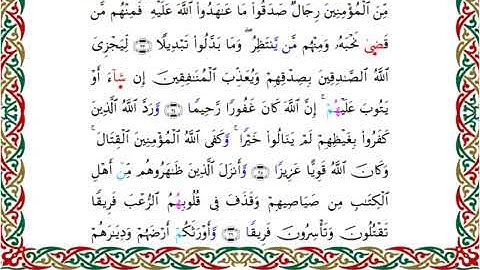 مِّنَ ٱلْمُؤْمِنِينَ رِجَالٌ صَدَقُوا۟ مَا عَٰهَدُوا۟ ٱللَّهَ عَلَيْهِ ۖ فَمِنْهُم مَّن
قَضَىٰ نَحْبَهُۥ وَمِنْهُم مَّن يَنتَظِرُ ۖ وَمَا بَدَّلُوا۟ تَبْدِيلًا ﴿٢٣﴾ لِّيَجْزِىَ
ٱللَّهُ ٱلصَّٰدِقِينَ بِصِدْقِهِمْ وَيُعَذِّبَ ٱلْمُنَٰفِقِينَ إِن شَآءَ أَوْ
يَتُوبَ عَلَيْهِمْ ۚ إِنَّ ٱللَّهَ كَانَ غَفُورًا رَّحِيمًا ﴿٢٤﴾ وَرَدَّ ٱللَّهُ ٱلَّذِينَ
كَفَرُوا۟ بِغَيْظِهِمْ لَمْ يَنَالُوا۟ خَيْرًا ۚ وَكَفَى ٱللَّهُ ٱلْمُؤْمِنِينَ ٱلْقِتَالَ ۚ
وَكَانَ ٱللَّهُ قَوِيًّا عَزِيزًا ﴿٢٥﴾ وَأَنزَلَ ٱلَّذِينَ ظَٰهَرُوهُم مِّنْ أَهْلِ
ٱلْكِتَٰبِ مِن صَيَاصِيهِمْ وَقَذَفَ فِى قُلُوبِهِمُ ٱلرُّعْبَ فَرِيقًا
تَقْتُلُونَ وَتَأْسِرُونَ فَرِيقًا ﴿٢٦﴾ وَأَوْرَثَكُمْ أَرْضَهُمْ وَدِيَٰرَهُمْ